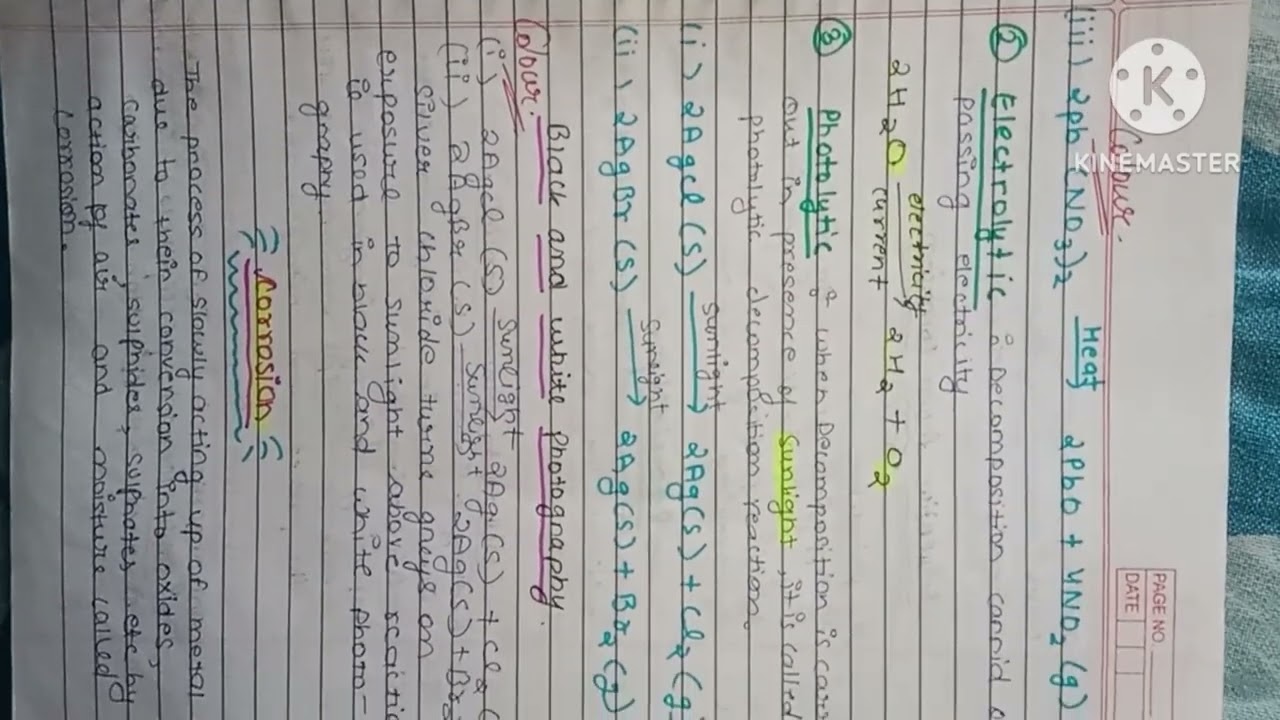 PAGE NO.
DATE
Colour.
(iii) 2pb(NO3)2 Heat 2PbO + 4NO2 (g)
② Electrolytic : Decomposition carrid
passing electricity
electricity
2H2O 2H2 + O2
current
③ Photolytic : when Decomposition is carr
out in presence of sunlight, it is called
photolytic decomposition reaction.
Sunlight
(i) 2Agcl (s) → 2Ag(s) + Cl2 (g
Sunlight
(ii) 2AgBr (s) → 2Ag(s) + Br2 (g)
Black and white photography.
Colour.
Sunlight
(i) 2Agcl (s) 2Ag(s) + Cl2 (
Sunlight
(ii) 2AgBr (s) 2Ag(s) + Br2
silver chloride turns greys on
exposure to sunlight above reactio
is used in black and white phot-
graphy.
Corrosion
The process of slowly acting up of metal
due to their convention into oxides,
carbonates, sulphides, sulphates etc by
action of air and moisture called
corrosion.
KINEMASTER